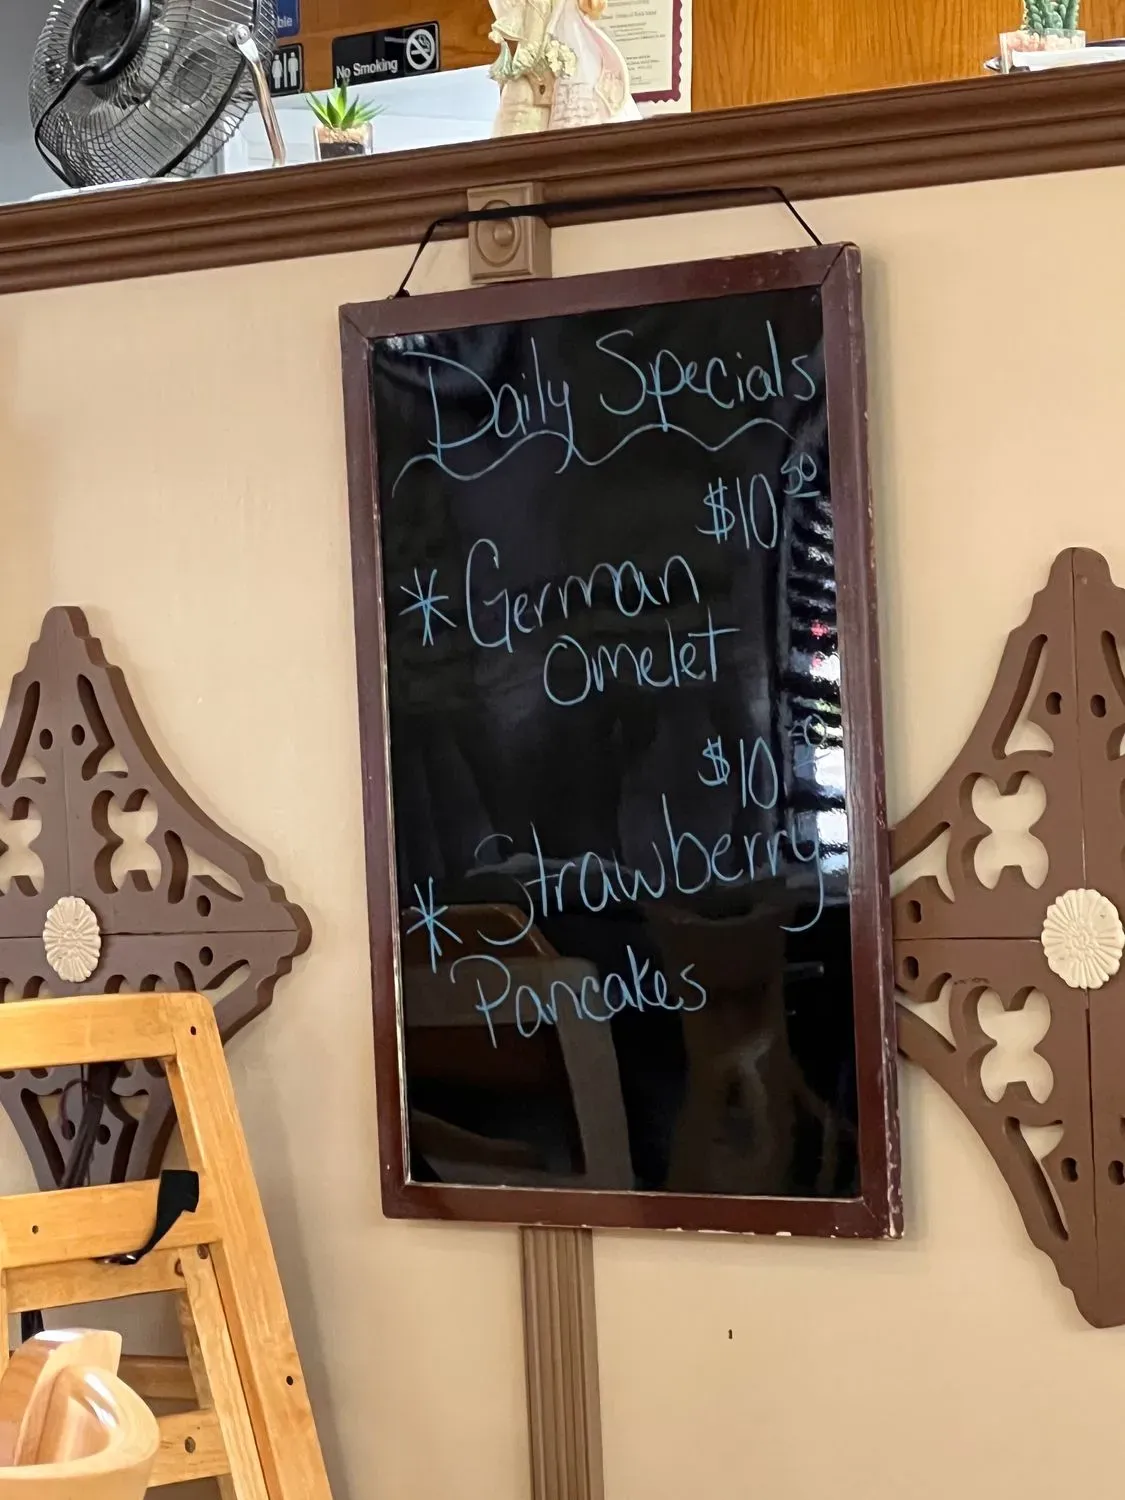 ble
No Smoking
Daily Specials
$10.50
* German
Omelet
$10.
* Strawberry
Pancakes